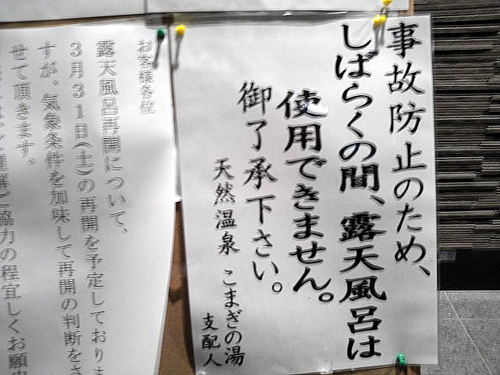 事故防止のため、
しばらくの間、露天風呂は
使用できません。
御了承下さい。
天然温泉 こまぎの湯
支配人
お客様各位
露天風呂再開について、
3月31日(土)の再開を予定しておりま
すが、気象条件を加味して再開の判断をさ
せて頂きます。
協力の程宜しくお願